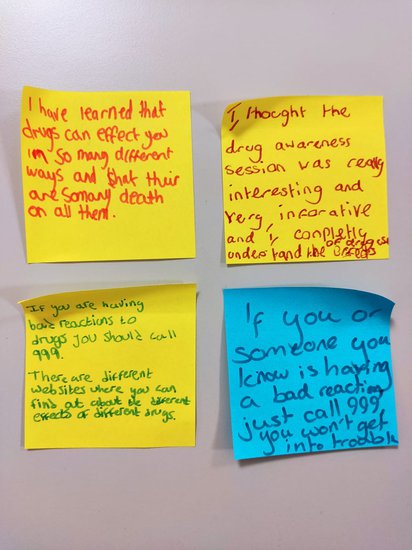 I have learned that
drugs can effect you
im so many different
ways and that their
are so many death
on all them.
I thought the
drug awareness
session was really
interesting and
very inforative
and I completly
understand the effects
of drug use
If you are having
bad reactions to
drugs you should call
999.
There are different
websites where you can
find out about the different
effects of different drugs.
If you or
someone you
know is having
a bad reaction
just call 999
you won't get
into trouble